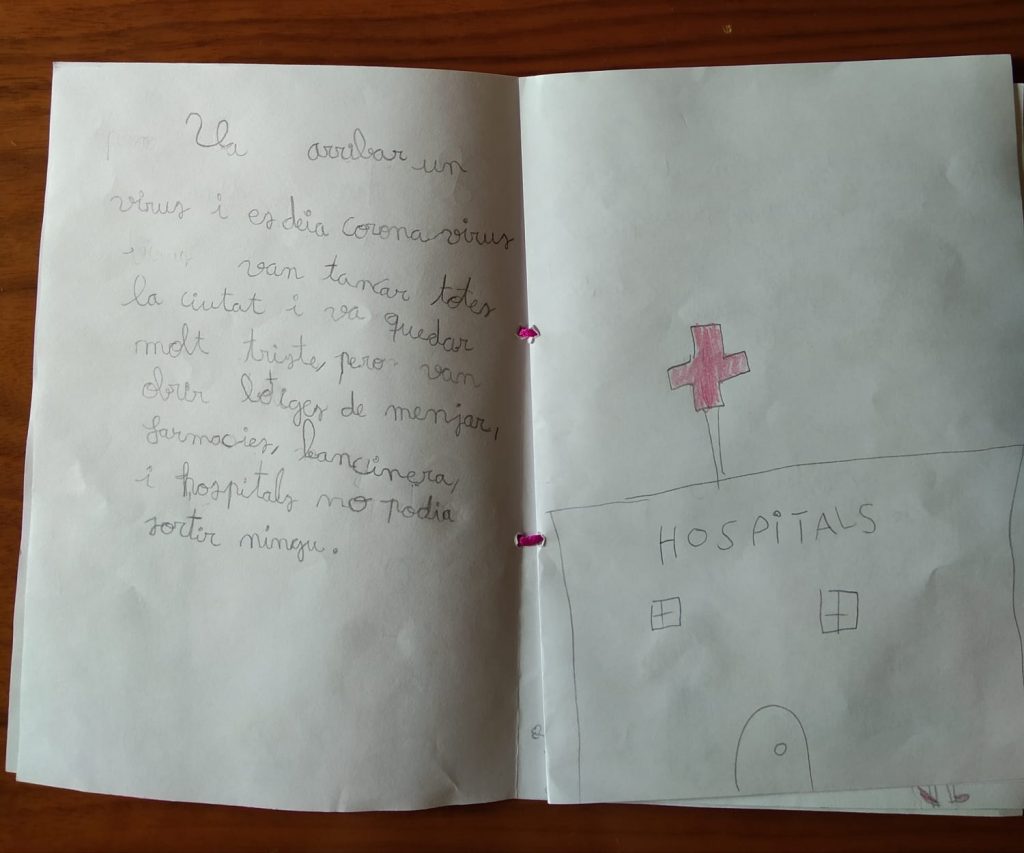 Va arribar un
virus i es deia corona virus
van tancar totes
la ciutat i va quedar
molt triste, pero van
obrir botiges de menjar,
farmacies,
i hospitals no podia
sortir ningu.
HOSPITALS